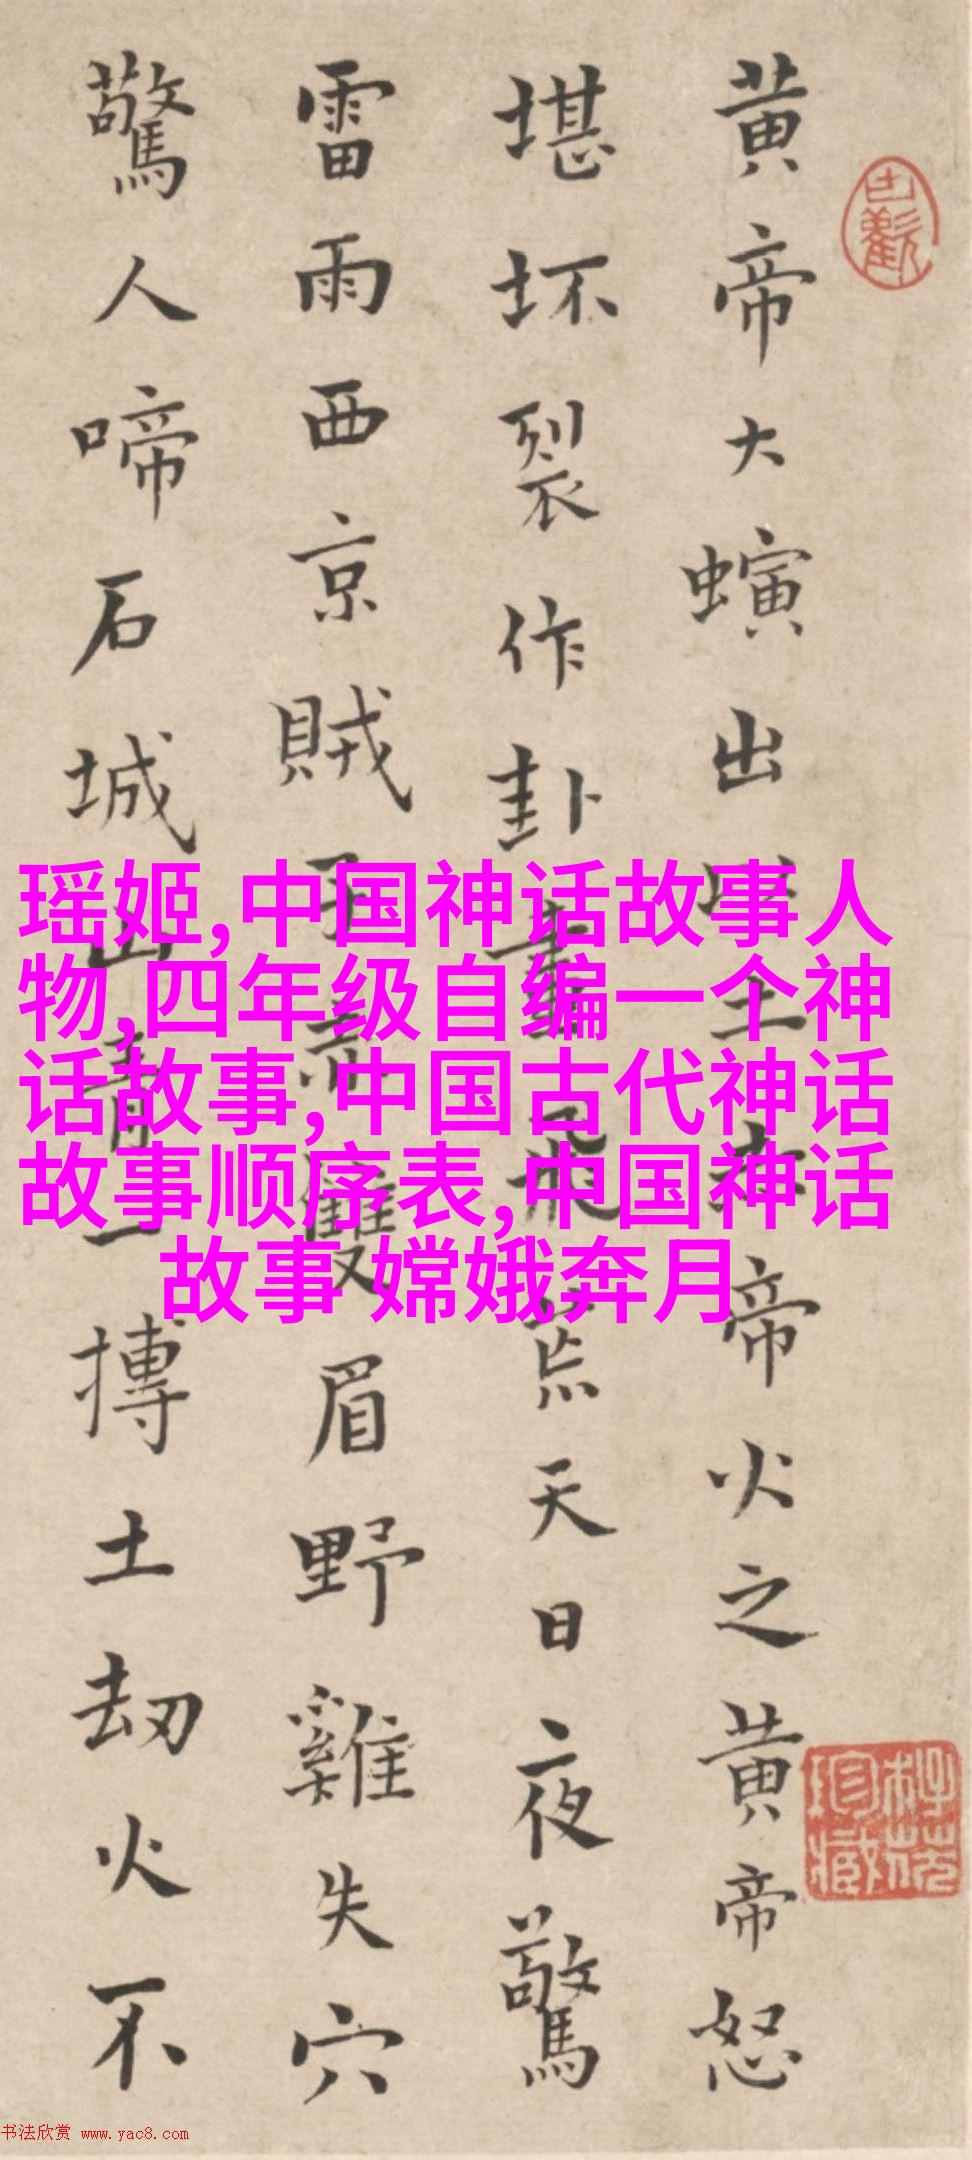 黄帝大螾出土土帝火之黄帝怒
堪坏裂作卦畫飛荒天日夜驚
雷雨西京賊子素雙眉野雞失穴
驚人啼石城山青一摶土劫火不
瑶姬,中国神话故事人
物,四年级自编一个神
话故事,中国古代神话
故事顺序表,中国神话
故事 嫦娥奔月
书法欣赏 www.yac8.com